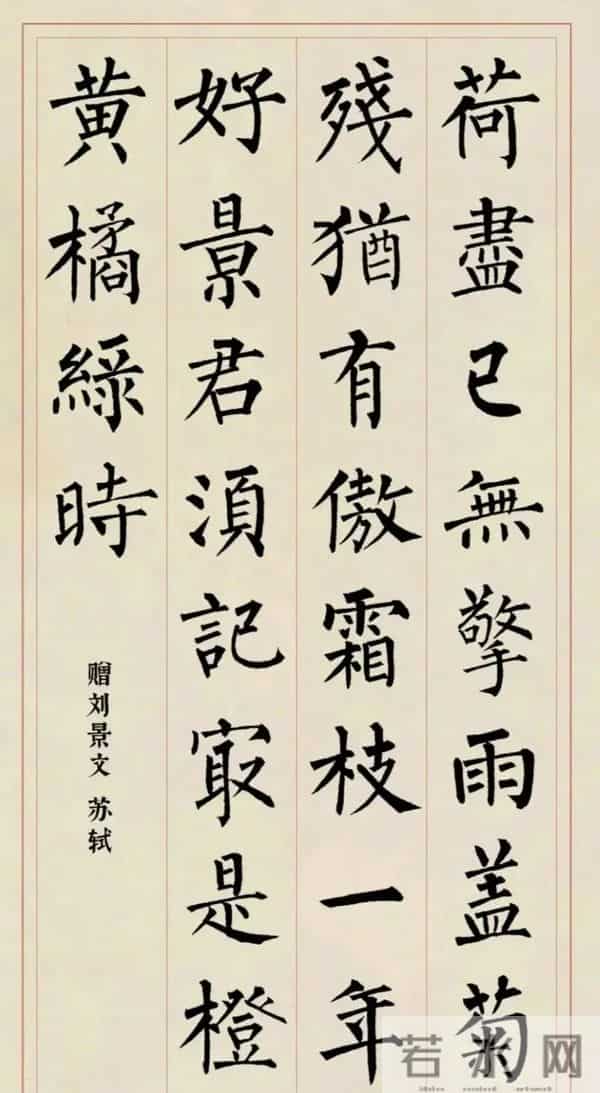 荷盡已無擎雨盖菊
殘猶有傲霜枝一年
好景君須記冣是橙
黄橘綠時
赠刘景文 苏轼